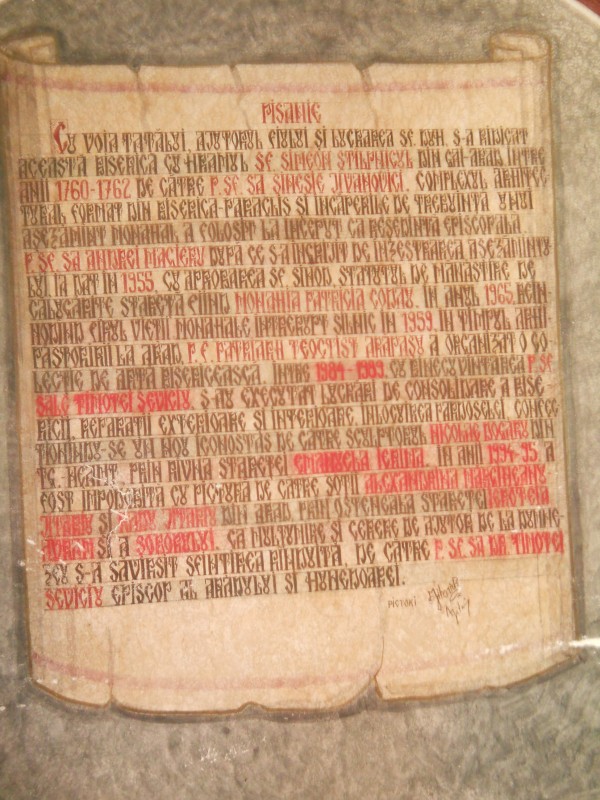 PISANIE
CU VOIA TATĂLUI, AJUTORUL FIULUI ȘI LUCRAREA SF. DUH, S-A RIDICAT
ACEASTA BISERICA CU HRAMUL SF. SIMEON STILPNICUL DIN GAI-ARAD, INTRE
ANII 1760-1762 DE CĂTRE P. SF. SA SINESIE JIVANOVICI. COMPLEXUL ARHITEC-
TURAL FORMAT DIN BISERICA-PARACLIS SI INCAPERILE DE TREBUINTA UNUI
ASEZAMINT MONAHAL A FOLOSIT LA INCEPUT CA RESEDINTA EPISCOPALA
P. SF. SA ANDREI MAGIERU DUPĂ CE S-A INGRIJIT DE INZESTRAREA ASEZAMINTU-
LUI, IA DAT IN 1955, CU APROBAREA SF. SINOD, STATUTUL DE MANASTIRE DE
CALUGARITE STARETA FIIND MONAHIA PATRICIA CODAU. IN ANUL 1965, REIN-
NODIND FIRUL VIETII MONAHALE INTRERUPT SILNIC IN 1959, IN TIMPUL ARHI
PASTORIRII LA ARAD, P. F. PATRIARH TEOCTIST ARAPASU A ORGANIZAT O CO-
LECTIE DE ARTA BISERICEASCA. INTRE 1984-1993 CU BINECUVINTAREA P. SF.
SALE TIMOTEI SEVICIU, S-AU EXECUTAT LUCRARI DE CONSOLIDARE A BISE
RICII, REPARATII EXTERIOARE SI INTERIOARE, INLOCUIREA PARDOSELEI, CONFEC
TIONINDU-SE UN NOU ICONOSTAS DE CATRE SCULPTORUL NICOLAE BOGARU DIN
TG.-NEAMT, PRIN RIVNA STARETEI EMANUELA IERIMA. IN ANII 1994-95, A
FOST IMPODOBITA CU PICTURA DE CATRE SOTII ALEXANDRINA MARGINEANU
JITARIU SI JITARIU DIN ARAD PRIN OSTENEALA STARETEI IEROTEIA
SI A SOBORULUI. CA MULTUMIRE SI CERERE DE AJUTOR DE LA DUMNE-
ZEU S-A SAVIRSIT SFINTIREA RINDUITA, DE CĂTRE P. SF. SA DR. TIMOTEI
SEVICIU EPISCOP AL ARADULUI SI HUNEDOAREI.
PICTORI